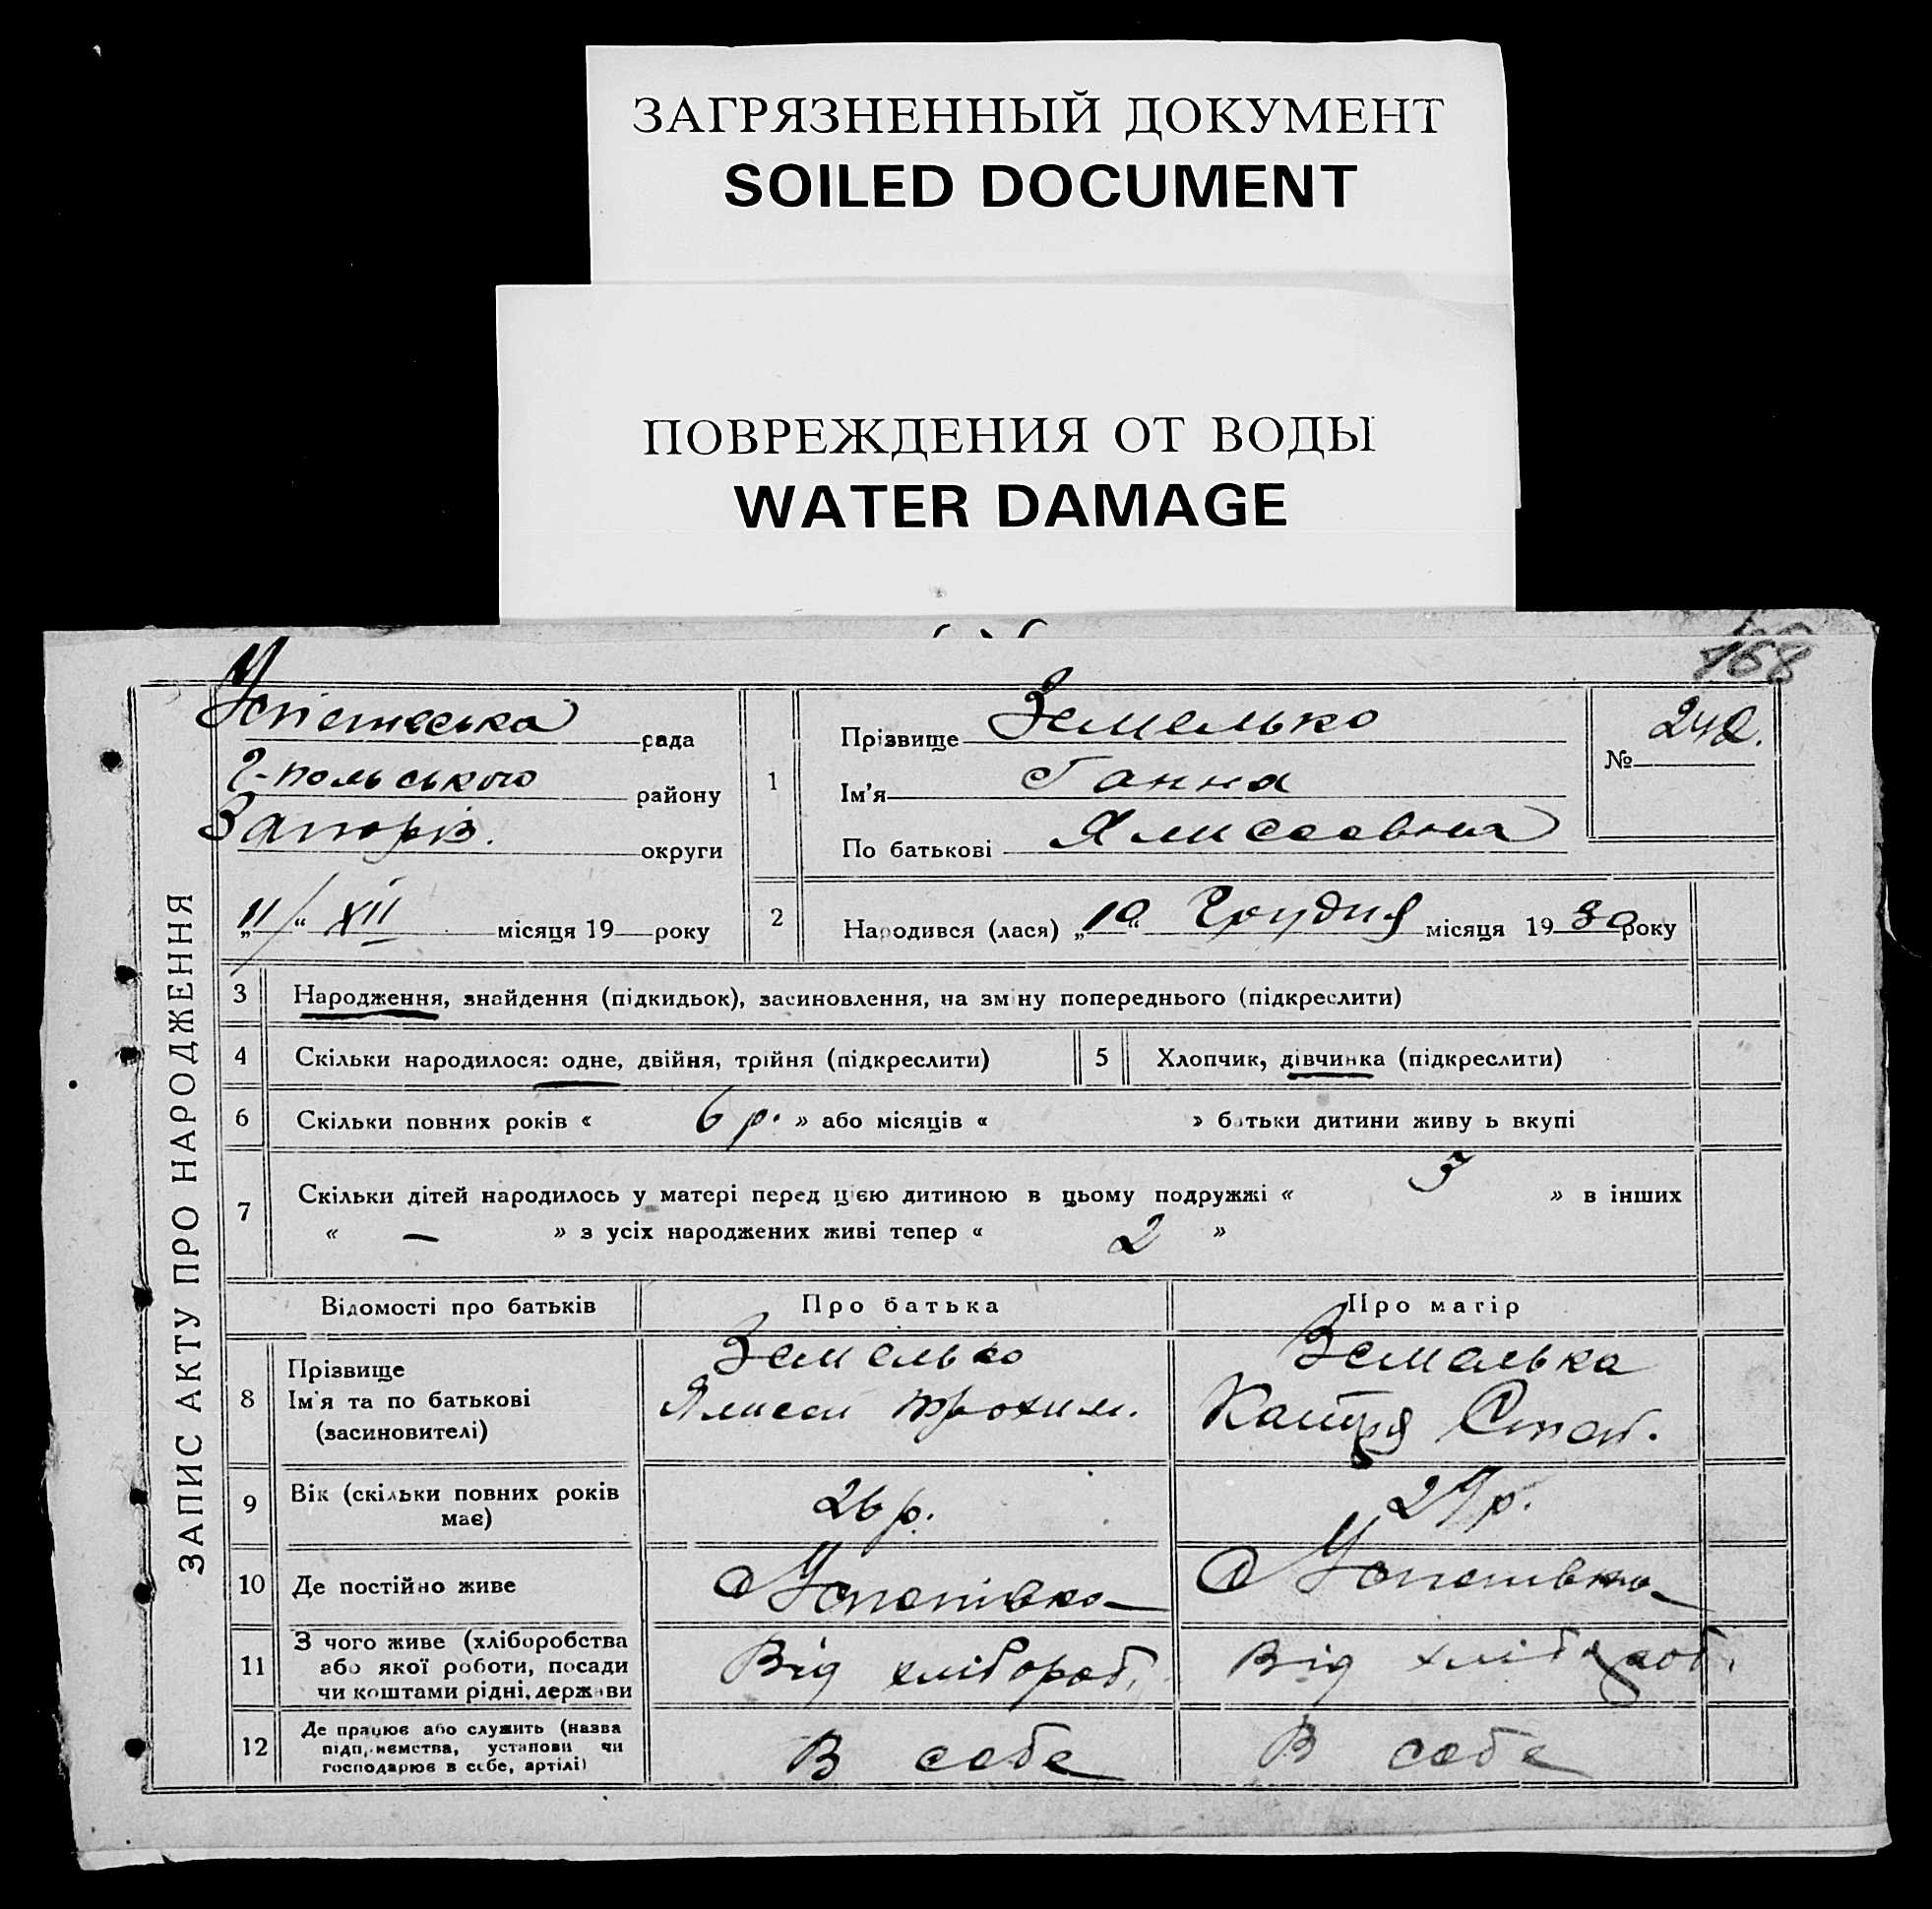 ЗАГРЯЗНЕННЫЙ ДОКУМЕНТ
SOILED DOCUMENT
ПОВРЕЖДЕНИЯ ОТ ВОДЫ
WATER DAMAGE
168
ЗАПИС АКТУ ПРО НАРОДЖЕННЯ
рада
Г-польського району
Запоріз. округи
„11/“ XII місяця 19 року
1
Прізвище Земелько
Ім'я Ганна
По батькові
№ 242.
2
Народився (лася) „10“ Грудня місяця 1930 року
3 Народження, знайдення (підкидьок), засиновлення, на зміну попереднього (підкреслити)
4 Скільки народилося: одне, двійня, трійня (підкреслити)
5 Хлопчик, дівчинка (підкреслити)
6 Скільки повних років « 6 р. » або місяців « » батьки дитини живу ь вкупі
7 Скільки дітей народилось у матері перед цією дитиною в цьому подружжі « 3 » в інших
« — » з усіх народжених живі тепер « 2 »
Відомості про батьків Про батька Про матір
8 Прізвище
Ім'я та по батькові
(засиновителі)
Земелько
Трохим.
Земелька
Катря
9 Вік (скільки повних років
має)
26 р.
10 Де постійно живе
11 З чого живе (хліборобства
або якої роботи, посади
чи коштами рідні, держави
Від хлібороб.
Від хлібороб.
12 Де працює або служить (назва
підприємства, установи чи
господарює в себе, артілі)
В себе
В себе